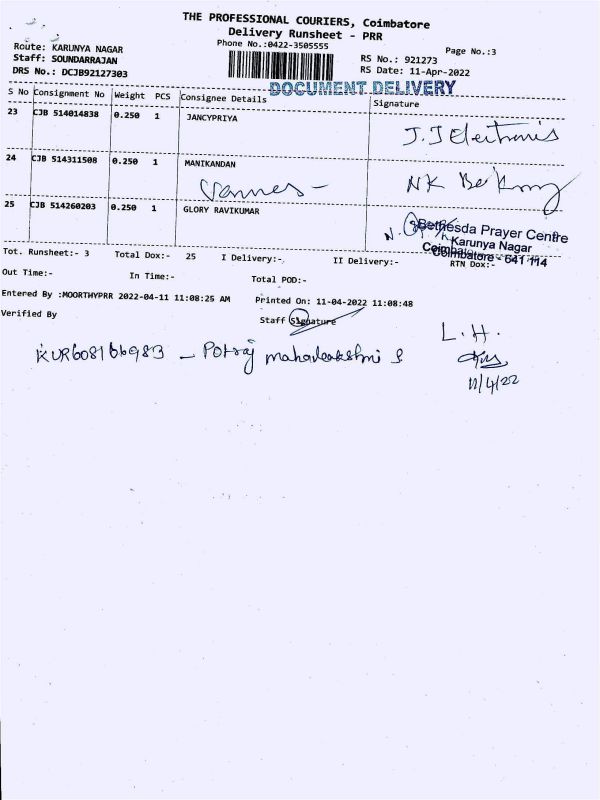 THE PROFESSIONAL COURIERS, Coimbatore
Delivery Runsheet - PRR
Phone No.:0422-3505555
Page No.:3
Route: KARUNYA NAGAR
Staff: SOUNDARRAJAN
DRS No.: DCJB92127303
RS No.: 921273
RS Date: 11-Apr-2022
DOCUMENT DELIVERY
S No Consignment No Weight PCS Consignee Details Signature
23 CJB 514014838 0.250 1 JANCYPRIYA
J.J Electronis
24 CJB 514311508 0.250 1 MANIKANDAN
NK
25 CJB 514260203 0.250 1 GLORY RAVIKUMAR
Bethesda Prayer Centre
Karunya Nagar
Coimbatore - 641 114
Tot. Runsheet:- 3 Total Dox:- 25 I Delivery:- II Delivery:- RTN Dox:-
Out Time:- In Time:- Total POD:-
Entered By :MOORTHYPRR 2022-04-11 11:08:25 AM Printed On: 11-04-2022 11:08:48
Verified By Staff Signature
L.H.
KUR608166983 - Potraj mahadeakshmi S
11/4/22